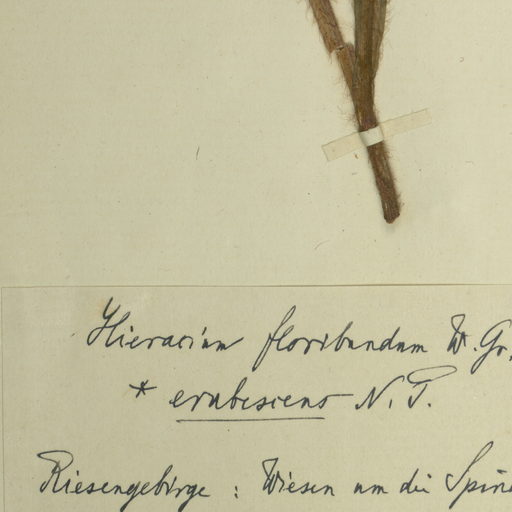 Hieracium floribundum W. Gr.
* erubescens N. P.
Riesengebirge : Wiesen um die